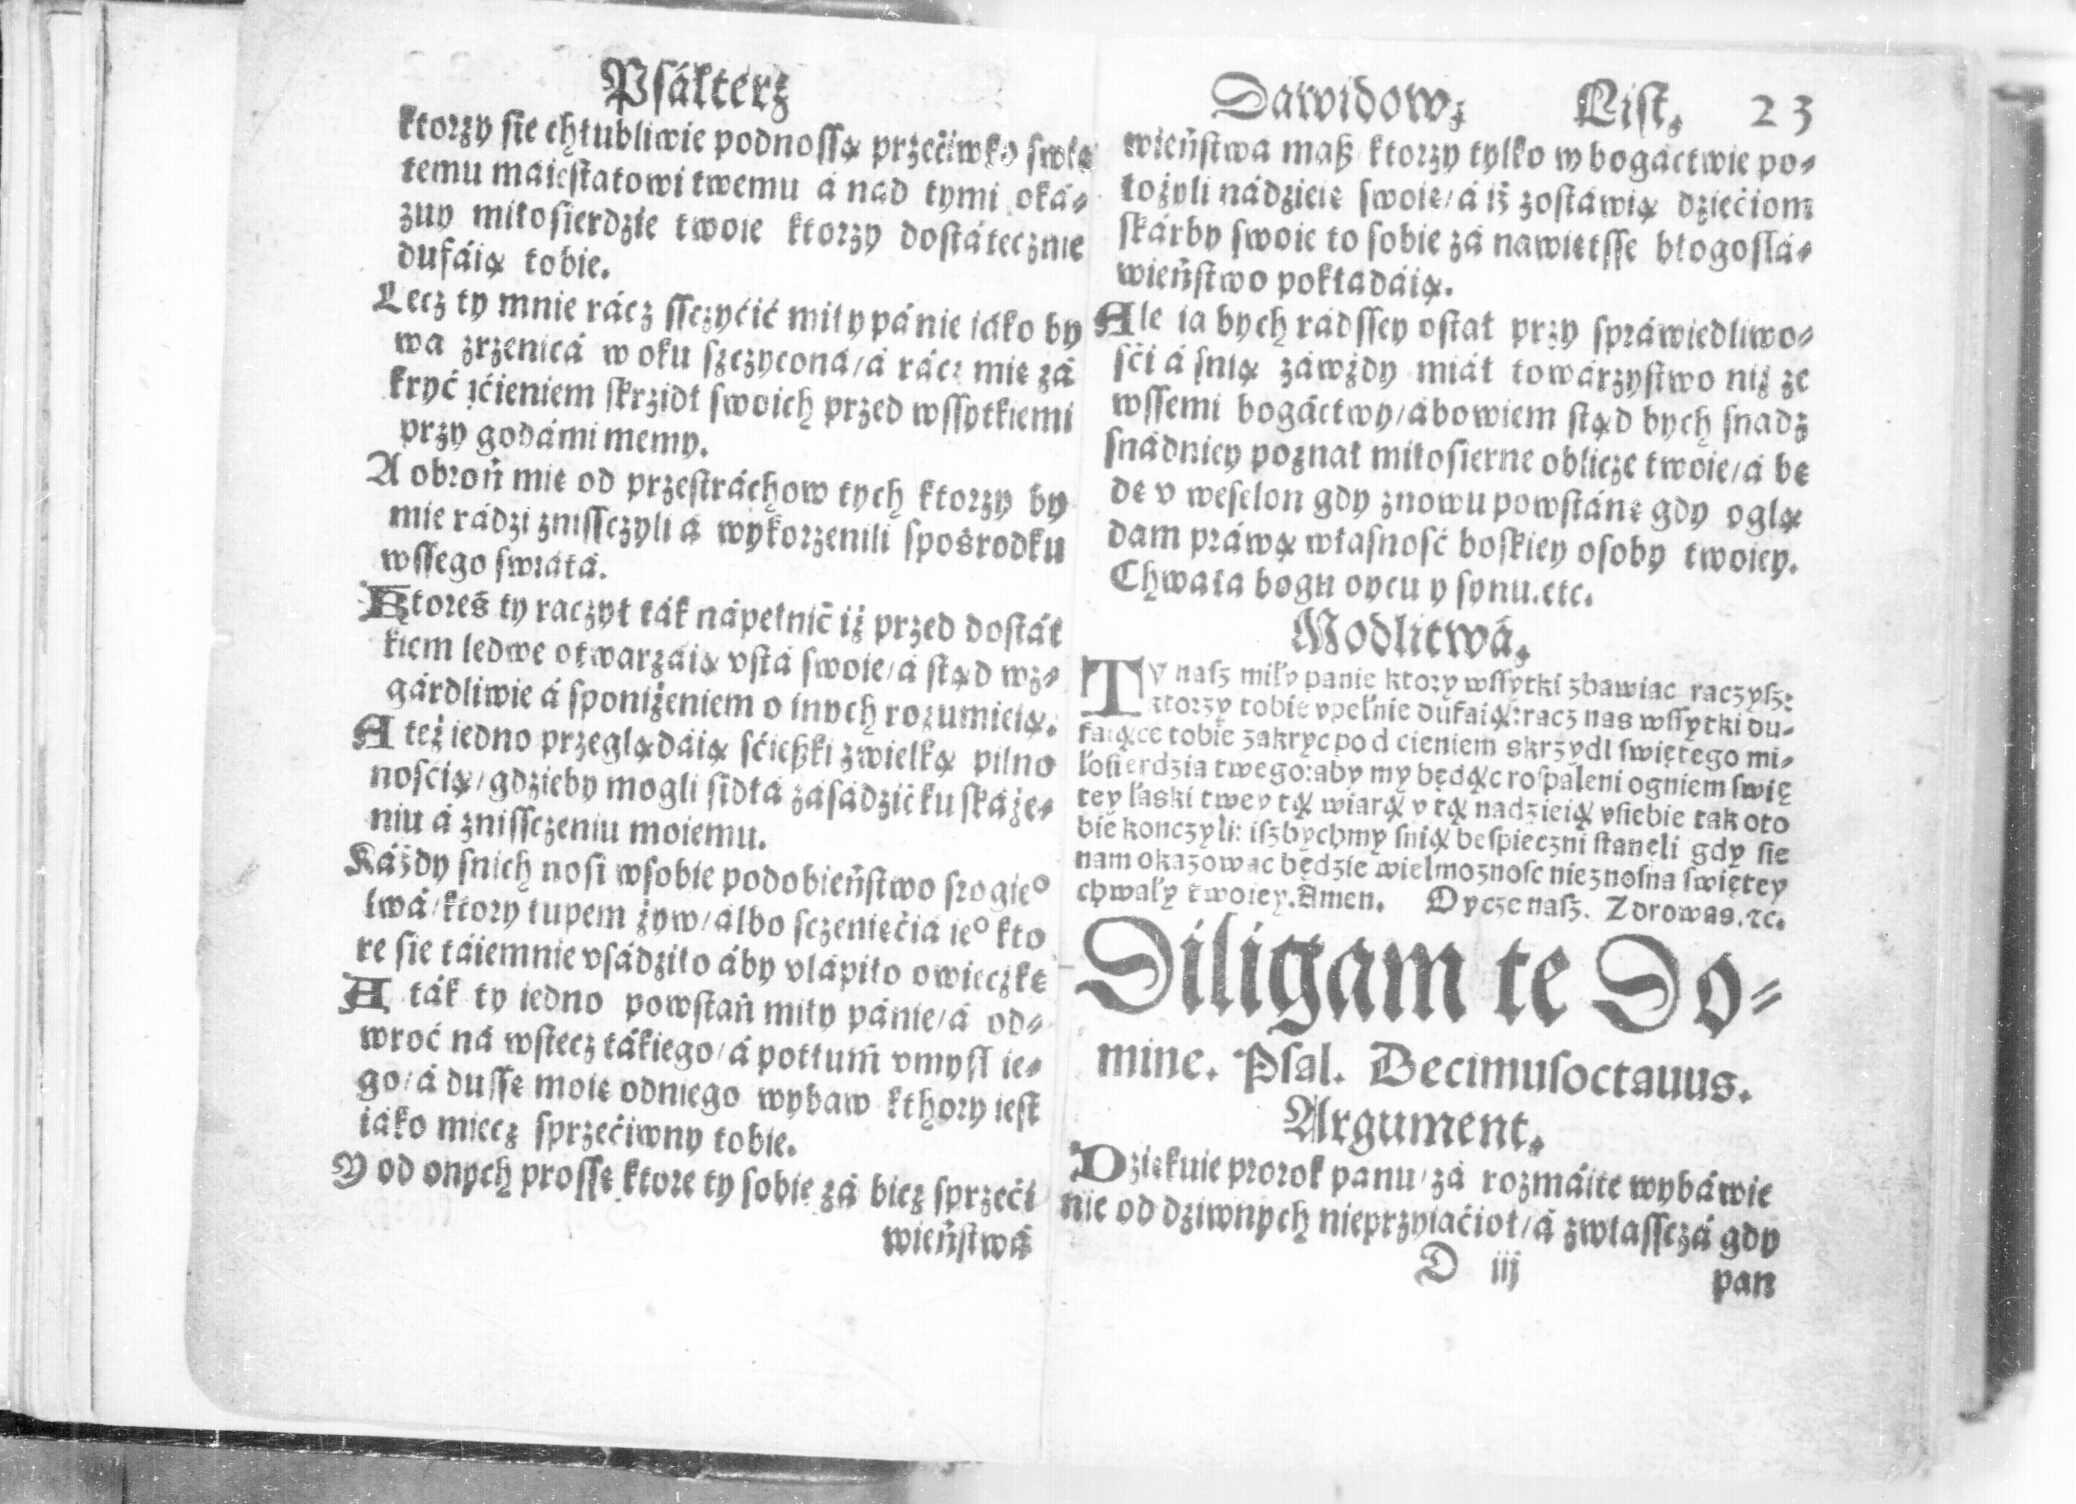 Psálterz
ktorzy sie chłubliwie podnossą przećiwko swię
temu maiestatowi twemu á nad tymi oká-
zuy miłosierdzie twoie ktorzy dostátecznie
dufáią tobie.
Lecz ty mnie rácz sſczyćić miły pánie iáko by
wa zrzenicá w oku szczyconá/á rácz mie zá
kryć śćieniem skrzidł swoich przed wssytkiemi
przy godámi memy.
A obroń mie od przestráchow tych ktorzy by
mie rádzi znisſczyli á wykorzenili spośrodku
wssego swiátá.
Ktoreś ty raczył ták nápełnić iż przed dostát
kiem ledwe otwarzáią vstá swoie/á stąd wz-
gárdliwie á sponiżeniem o inych rozumieią.
A też iedno przeglądáią śćieżki zwielką pilno
nością/gdzieby mogli sidłá zásádzić ku skáże-
niu á znisſczeniu moiemu.
Káżdy snich nosi wsobie podobieństwo srogie°
lwá/ktory łupem żyw/álbo sczenięćia ie° kto
re sie táiemnie vsádziło áby vlápiło owieczkę
A ták ty iedno powstań miły pánie/á od-
wroć ná wstecz tákiego/á potłum vmysł ie-
go/á dussę moię odniego wybaw kthory iest
iáko miecz sprzećiwny tobie.
Y od onych prossę ktore ty sobie zá bicz sprzeći
wieństwá
Dawidow, List, 23
wieństwa maß ktorzy tylko w bogáctwie po-
łożyli nádzieię swoię/á iż zostáwią dziećiom
skárby swoie to sobie zá nawiętsse błogosłá-
wieństwo pokładáią.
Ale ia bych rádssey ostał przy spráwiedliwo-
śći á snią záwżdy miáł towárzystwo niż ze
wssemi bogáctwy/ábowiem stąd bych snadz
snádniey poznał miłosierne oblicze twoie/á bę
dę v weselon gdy znowu powstánę gdy oglą
dam práwą własność boskiey osoby twoiey.
Chwała bogu oycu y synu.etc.
Modlitwá,
TY nasz miły panie ktory wssytki zbawiac raczysz:
ktorzy tobie vpełnie dufaią: racz nas wssytki du-
faiące tobie zakryc pod cieniem skrzydl swiętego mi-
łosierdzia twego: aby my będąc rospaleni ogniem swię
tey łaski twey tą wiarą y tą nadzieią vsiebie tak oto
bie konczyli: iszbychmy snią bespieczni stanęli gdy się
nam okazowac będzie wielmoznosc nieznosna swiętey
chwały twoiey. Amen. Oycze nasz. Zdrowas. ꝛc.
Diligam te Do-
mine. Psal. Decimusoctauus.
Argument.
Dziękuie prorok panu/zá rozmáite wybáwie
nie od dziwnych nieprzyiaćioł/á zwłasſczá gdy
D iij
pan